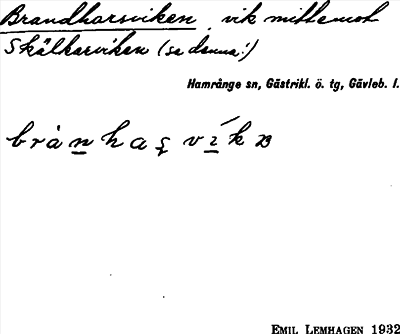 Brandharsviken, vik mittemot
Skälharviken (se denna!)
Hamrånge sn, Gästrikl. ö. tg, Gävleb. l.
brånhas vik
EMIL LEMHAGEN 1932